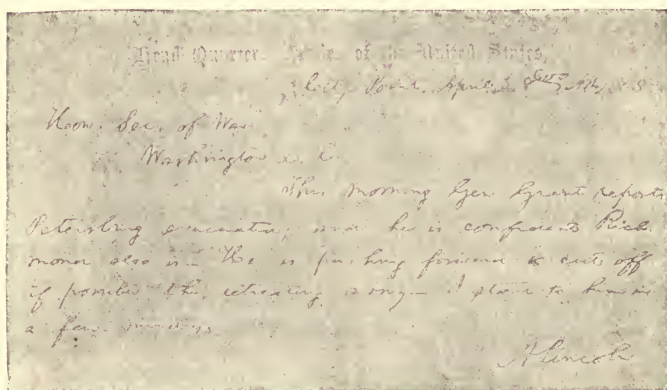 Head Quarters Armies of the United States,
City Point, April 3.
Hon. Sec. of War
Washington D. C.
This morning Gen Grant reports
Petersburg evacuated, and he is confident Rich-
mond also is. He is pushing forward to cut off
if possible the retreating army. I start to him in
a few minutes.
A Lincoln